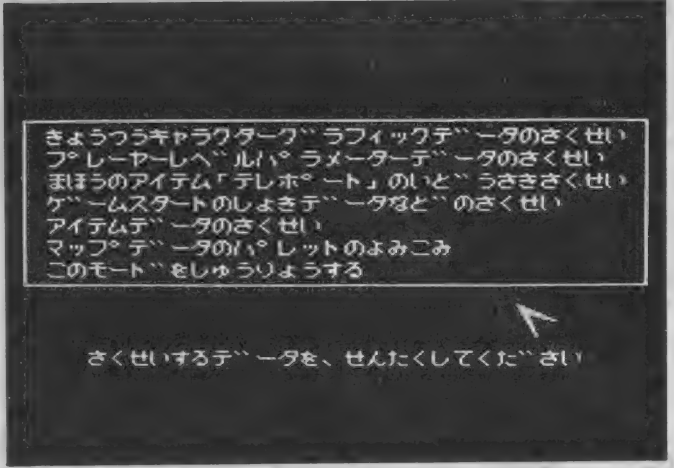 きょうつうキャラクターグラフィックデータのさくせい
プレーヤーレベルパラメーターデータのさくせい
まほうのアイテム「テレポート」のいどうさきさくせい
ゲームスタートのしょきデータなどのさくせい
アイテムデータのさくせい
マップデータのパレットのよみこみ
このモードをしゅうりょうする
さくせいするデータを、せんたくしてください